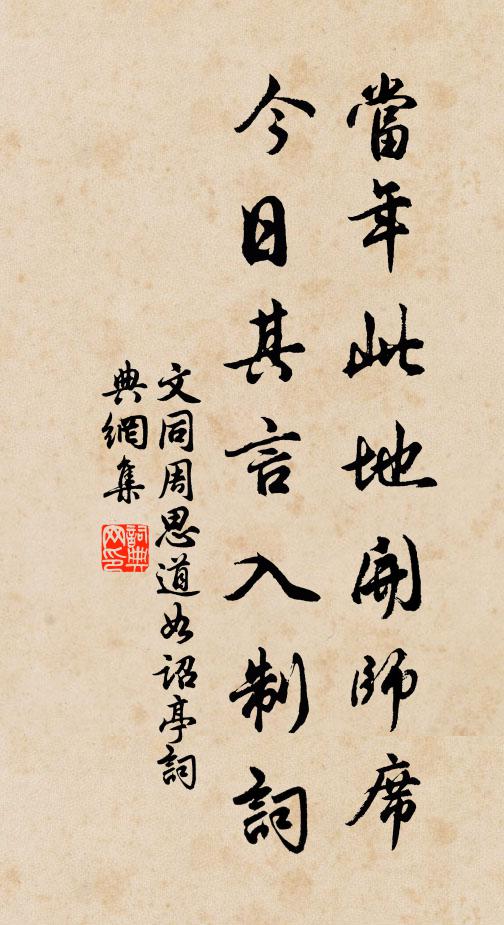 當年此地開師席
今日其言入制詞
文同周思道如詔亭詞
典網集
詞典網印